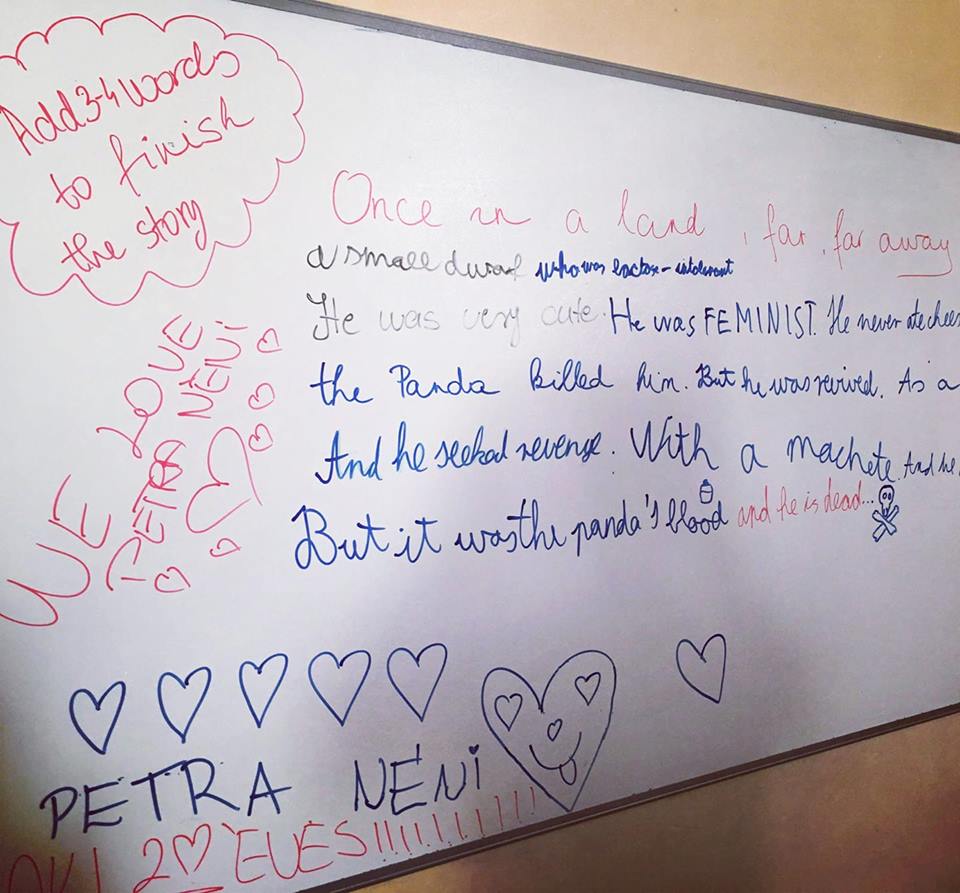 Add 3-4 words
to finish
the story
Once in a land, far, far away
a small dwarf who was lactose-intolerant
He was very cute. He was FEMINIST. He never ate chees
the Panda killed him. But he was revived. As a
And he seeked revenge. With a machete. And he
But it was the panda's blood and he is dead...
WE LOVE
PETRA NÉNI
PETRA NÉNI
AKI 20 ÉVES!!!!!!!!!!